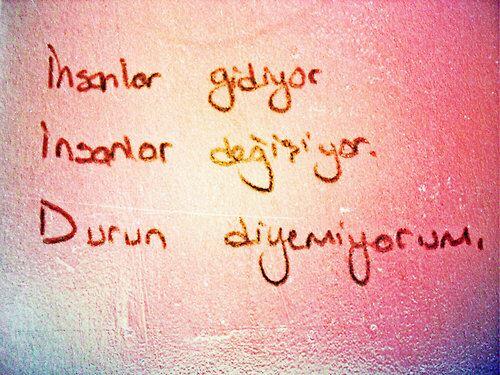 İnsanlar gidiyor
İnsanlar değişiyor.
Durun diyemiyorum.